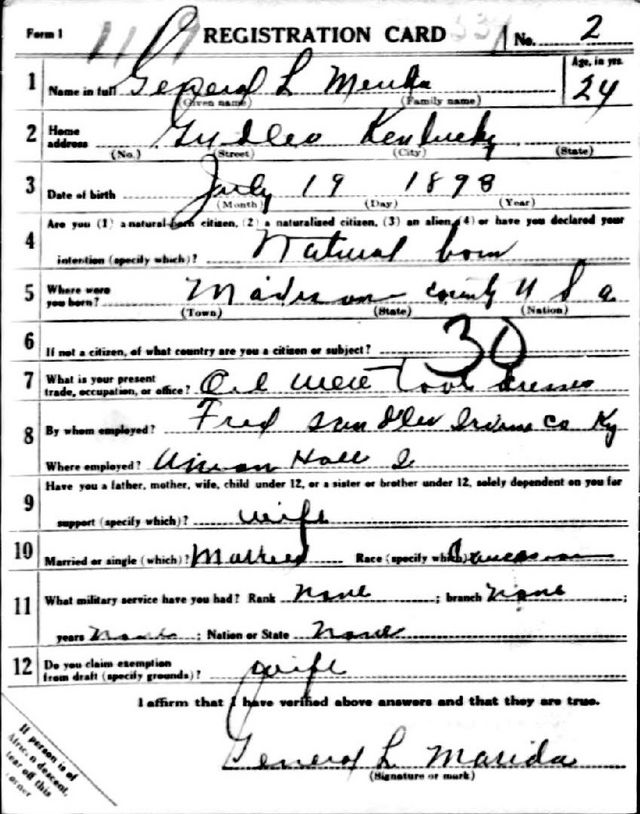 Form 1 REGISTRATION CARD No. 2
1 Name in full General L (Given name) (Family name) Age, in yrs. 24
2 Home address Kentucky (No.) (Street) (City) (State)
3 Date of birth July 19 1893 (Month) (Day) (Year)
4 Are you (1) a natural-born citizen, (2) a naturalized citizen, (3) an alien, (4) or have you declared your
intention (specify which)? Natural born
5 Where were you born? Madison county U S a (Town) (State) (Nation)
6 If not a citizen, of what country are you a citizen or subject? 30
7 What is your present trade, occupation, or office? Oil Well tool dresser
8 By whom employed? Fred Co Ky
Where employed? Union Hall
9 Have you a father, mother, wife, child under 12, or a sister or brother under 12, solely dependent on you for
support (specify which)? wife
10 Married or single (which)? Married Race (specify which)? Caucasian
11 What military service have you had? Rank None ; branch None ;
years None ; Nation or State None
12 Do you claim exemption from draft (specify grounds)? wife
I affirm that I have verified above answers and that they are true.
General L Marida
(Signature or mark)
If person is of
African descent,
tear off this
corner